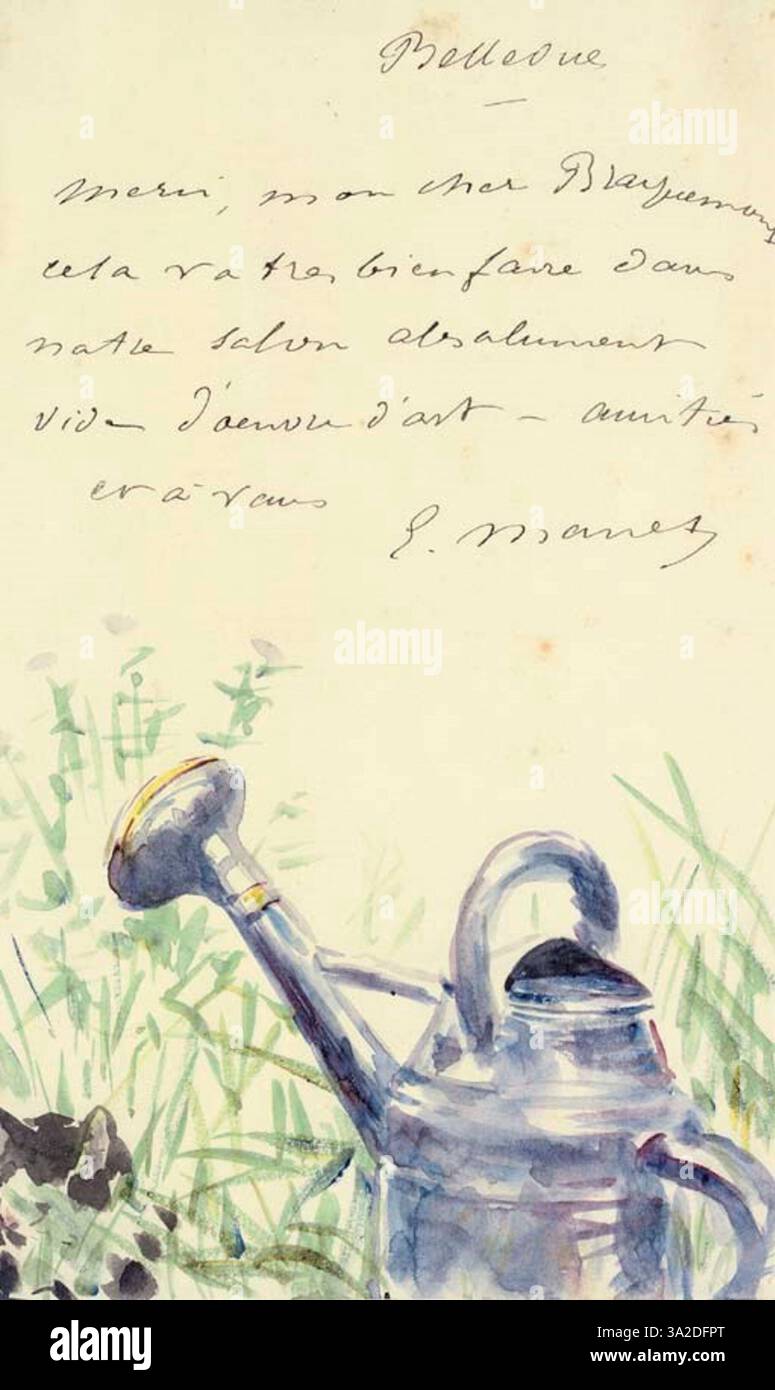 Bellevue
Merci, mon cher Bracquemond
cela va tres bien faire dans
notre salon absolument
vide d'oeuvre d'art – amitiés
et à vous
E. Manet
a
alamy
alamy
a
a
alamy
a
a
alamy
alamy
Image ID: 3A2DFPT
www.alamy.com